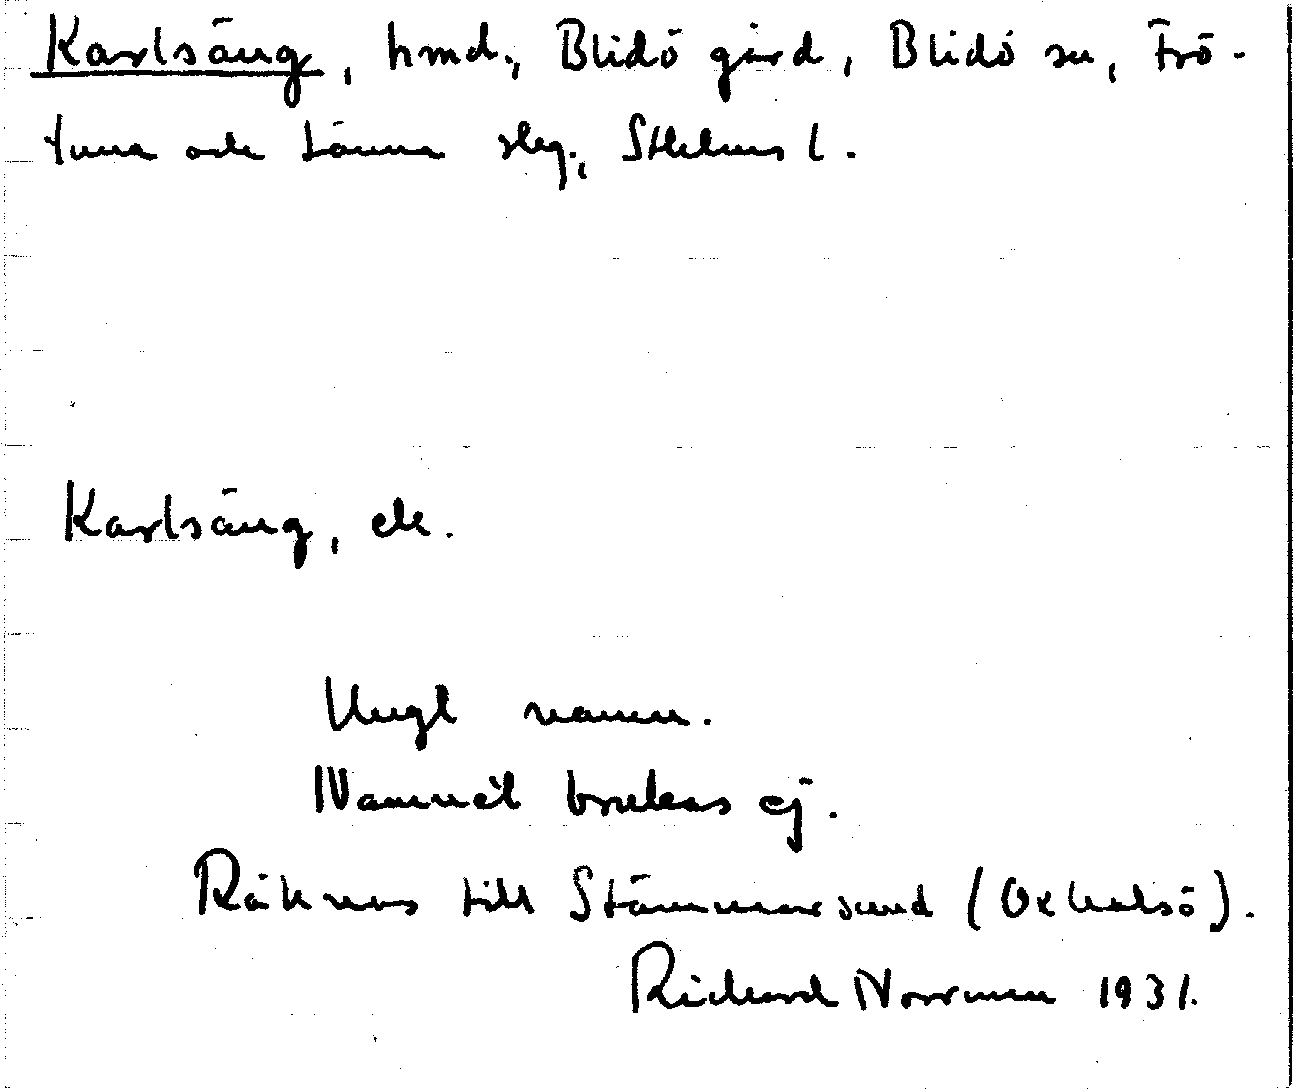 Karlsäng, hmd., Blidö gård, Blidö sn, Frö-
tuna och Länna slg., Sthlms l.
Karlsäng, ek.
Ungt namn.
Namnet brukas ej.
Räknas till Stämmarsund (Oxhalsö).
Rickard Norrman 1931.